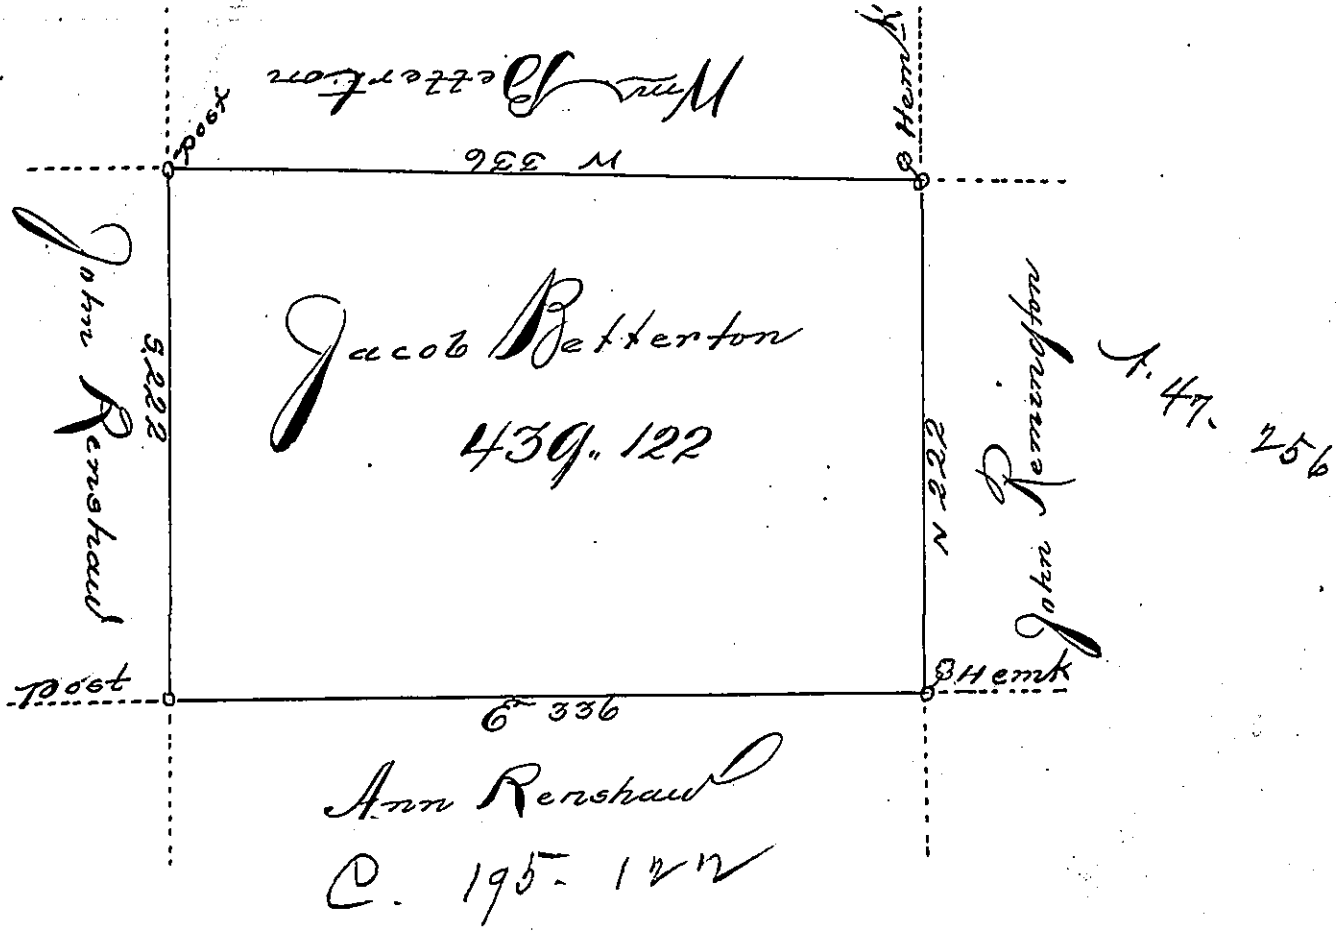 Wm Betterton
Post
B Hemk
W 336
John Renshaw
S. 222
Jacob Betterton
439.. 122
N 222
John Remington
47. 256
Post
B Hemk
E 336
Ann Renshaw
C. 195- 122